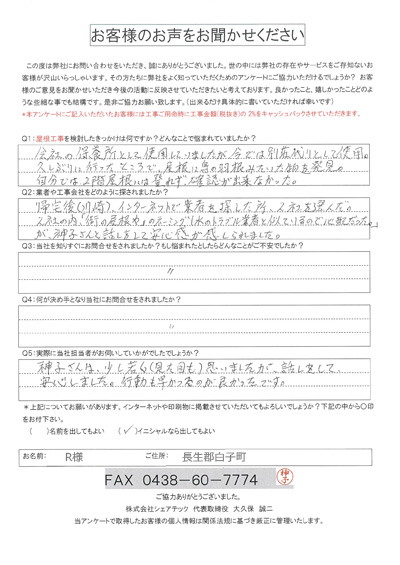 お客様のお声をお聞かせください
この度は弊社にお問い合わせをいただき、誠にありがとうございました。世の中には弊社の存在やサービスをご存知ないお
客様が沢山いらっしゃいます。その方たちに弊社をよく知っていただくためのアンケートにご協力いただけるでしょうか？ お客
様のご意見をお聞かせいただき今後の活動に反映させていただきたいと考えております。良かったこと、嬉しかったことどのよ
うな些細な事でも結構です。是非ご協力お願い致します。（出来るだけ具体的に書いていただければ幸いです）
*本アンケートにご記入いただいたお客様には工事ご用命時に工事金額（税抜き）の2%をキャッシュバックさせていただきます。
Q1:屋根工事を検討したきっかけは何ですか？どんなことで悩まれていましたか？
会社の保養所として使用していましたが、今では別荘代りとして使用。
久しぶりに行ったところで、屋根に鳥の羽根みたいた物を発見。
自分では2階屋根には登れず確認が出来なかった。
Q2:業者や当社をどのように探されましたか？
帰宅後(川崎)、インターネットで業者を探した所、2社を選んだ。
2社の内「街の屋根や」のネーミング(水のトラブル業者と似ているので心配だった。)
が、神子さんと話しをして安心感が感じられました。
Q3:当社を知りすぐにお問合せをされましたか？もし悩まれたとしたらどんなことがご不安でしたか？
〃
Q4:何が決め手となり当社にお問合せをされましたか？
〃
Q5:実際に当社担当者がお伺いしていかがでしたでしょうか？
神子さんは、少し若い(見た目も)思いましたが、話しをして、
安心しました。行動も早かったのが良かったです。
*上記についてお願いがあります。インターネットや印刷物に掲載させていただいてもよろしいでしょうか？下記の中から〇印
をお付下さい。
( )名前を出してもよい (✓)イニシャルなら出してもよい
お名前: R様 ご住所: 長生郡白子町
FAX 0438-60-7774 神子
ご協力ありがとうございました。
株式会社シェアテック 代表取締役 大久保 誠二
当アンケートで取得したお客様の個人情報は関係法規に基づき厳正に管理いたします。